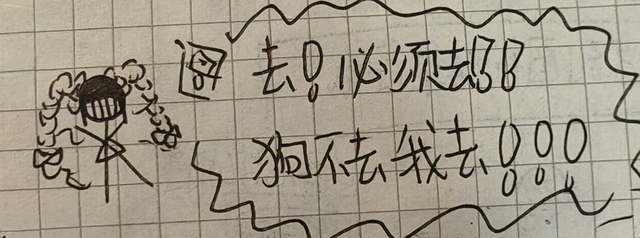 图 去！必须去！！
狗不去我去！！！